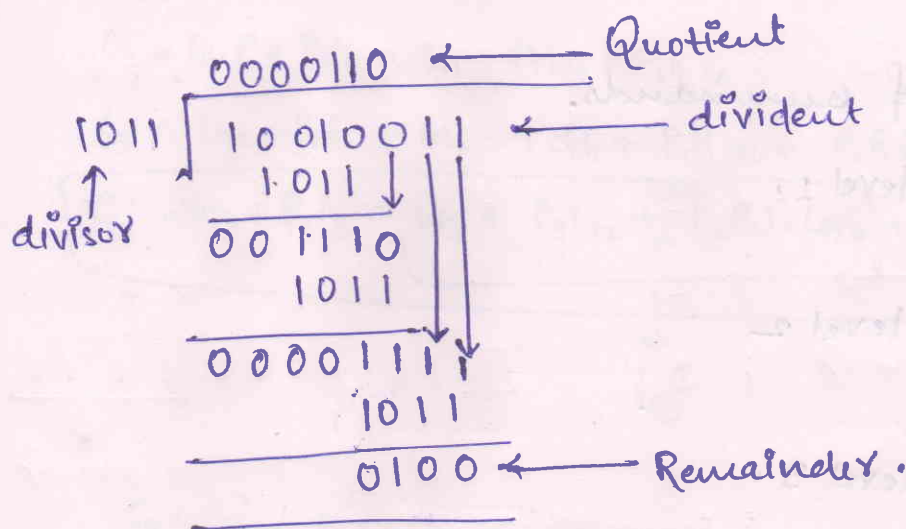 0000110 ← Quotient
1011 10010011 ← divident
divisor 1011
001110
1011
00001111
1011
0100 ← Remainder.